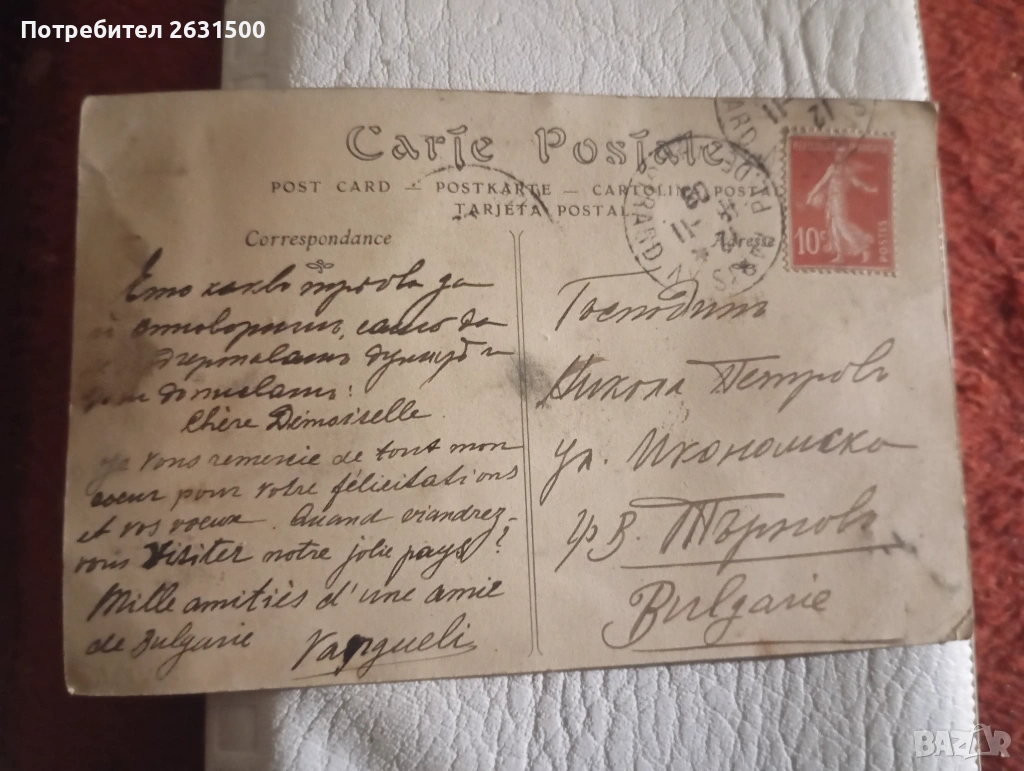 Потребител 2631500
Carte Postale
POST CARD — POSTKARTE — CARTOLINA POSTAL
TARJETA POSTAL
Correspondance
Adresse
10c
POSTES
Ето какво трѣбва да
отговоришъ, само да
Chère Demoiselle
Je vous remercie de tout mon
coeur pour votre félicitations
et vos voeux. Quand viendrez-
vous visiter notre jolie pays?
Mille amitiés d'une amie
de Bulgarie
Господинъ
Никола Петровъ
ул. Икономска
гр В. Търновъ
Bulgarie
BAZAR